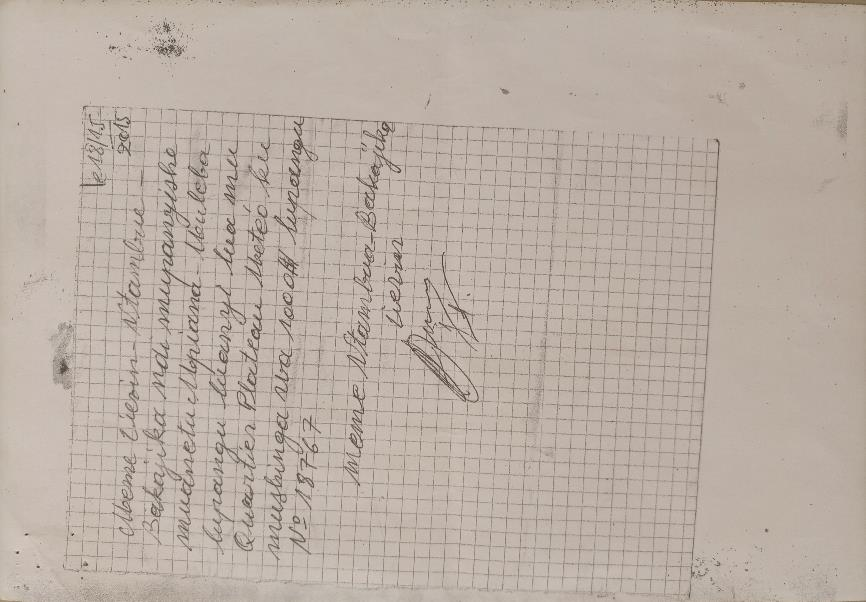 le 18/15
2015
Meme Lievin-Ntambue-
Bakajika ndi mupanyisho
muanetu Mpiana-Muleba
lupangu luanyi lua mu
Quartier Plateau Metéo ku
mushinga wa 1000$ lupangu
No 18767
Meme Ntambua-Bakajika
Lievin